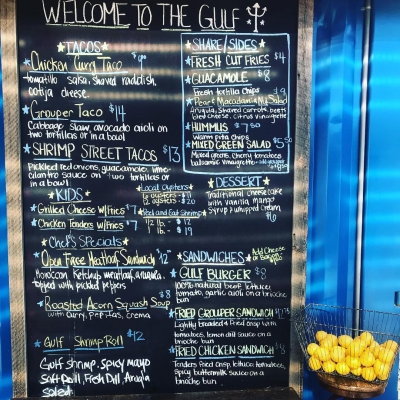 WELCOME TO THE GULF
TACOS
Chicken Curry Taco
tomatillo salsa, shaved raddish,
cotija cheese.
Grouper Taco $14
Cabbage Slaw, avocado aioli on
two tortillas or in a bowl
SHRIMP STREET TACOS $13
Pickled red onions, guacamole, lime
cilantro sauce on two tortillas or
in a bowl
KIDS
Grilled Cheese w/Fries $7
Chicken Tenders w/Fries $7
Local Oysters
Peel and Eat Shrimp
1/2 lb. - $12
1 lb. - $19
Chef's Specials
Open Face Meatloaf Sandwich $12
Moroccan Ketchup, meatloaf, arugula,
topped with pickled peppers
Roasted Acorn Squash Soup $8
with Curry, Pepitas, Crema
Gulf Shrimp Roll $12
Gulf shrimp, spicy mayo
Soft Roll, Fresh Dill, Arugula
salad
SHARE/SIDES
FRESH CUT FRIES $4
GUACAMOLE $8
Fresh tortilla Chips
Pear & Macadamia Nut Salad
Arugula, Shaved Carrots, beets,
bleu cheese, citrus vinaigrette
HUMMUS
warm pita chips
MIXED GREEN SALAD
Mixed greens, Cherry tomatoes
balsamic vinaigrette
DESSERT
Traditional Cheesecake
with vanilla mango
Syrup & whipped cream
SANDWICHES
Add Cheese
GULF BURGER $8
100% natural beef, lettuce,
tomato, garlic aioli on a brioche
bun
FRIED GROUPER SANDWICH
Lightly breaded & Fried crisp with
tomatoes, lemon dill sauce on a
brioche bun
FRIED CHICKEN SANDWICH
Tenders Fried crisp, lettuce, tomatoes,
Spicy buttermilk sauce on a
brioche bun